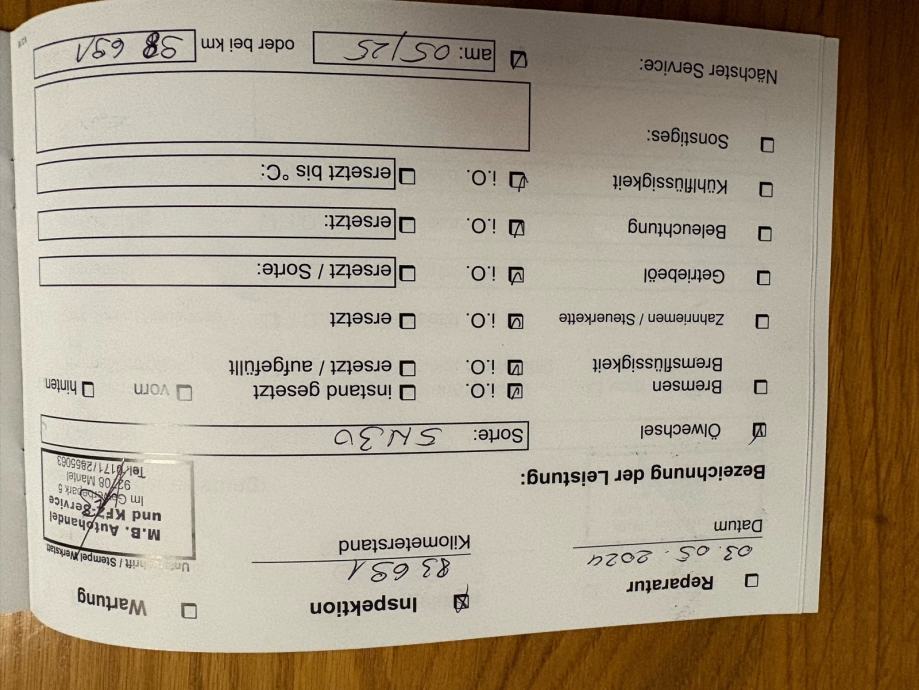 Reparatur Inspektion Wartung
03.05.2024 83 691
Datum Kilometerstand Unterschrift / Stempel Werkstatt
M.B. Autohandel
und KFZ-Service
Im Gewerbepark 6
92708 Mantel
Tel. 0171/2855063
Bezeichnung der Leistung:
Ölwechsel Sorte: 5W30
Bremsen i.O. instand gesetzt vorn hinten
Bremsflüssigkeit i.O. ersetzt / aufgefüllt
Zahnriemen / Steuerkette i.O. ersetzt
Getriebeöl i.O. ersetzt / Sorte:
Beleuchtung i.O. ersetzt:
Kühlflüssigkeit i.O. ersetzt bis °C:
Sonstiges:
Nächster Service: am: 05/25 oder bei km 98 691